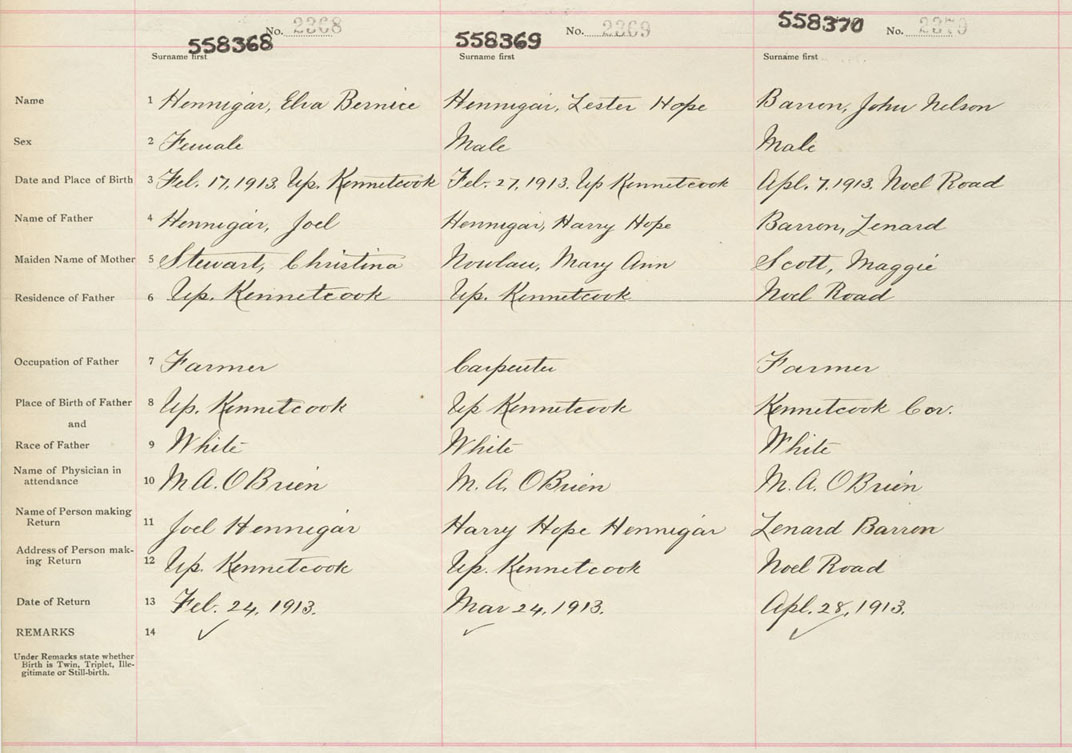 No. 2368 No. 2369 No. 2370
558368 558369 558370
Surname first Surname first Surname first
Name 1 Hennigar, Elva Bernice Hennigar, Lester Hope Barron, John Nelson
Sex 2 Female Male Male
Date and Place of Birth 3 Feb. 17, 1913. Up. Kennetcook Feb. 27, 1913. Up Kennetcook Apl. 7, 1913. Noel Road
Name of Father 4 Hennigar, Joel Hennigar, Harry Hope Barron, Lenard
Maiden Name of Mother 5 Stewart, Christina Nowlan, Mary Ann Scott, Maggie
Residence of Father 6 Up. Kennetcook Up. Kennetcook Noel Road
Occupation of Father 7 Farmer Carpenter Farmer
Place of Birth of Father 8 Up. Kennetcook Up Kennetcook Kennetcook Cor.
and
Race of Father 9 White White White
Name of Physician in
attendance 10 M. A. O Brien M. A. O Brien M. A. O Brien
Name of Person making
Return 11 Joel Hennigar Harry Hope Hennigar Lenard Barron
Address of Person mak-
ing Return 12 Up. Kennetcook Up. Kennetcook Noel Road
Date of Return 13 Feb. 24, 1913. Mar 24, 1913. Apl. 28, 1913.
REMARKS 14
Under Remarks state whether
Birth is Twin, Triplet, Ille-
gitimate or Still-birth.